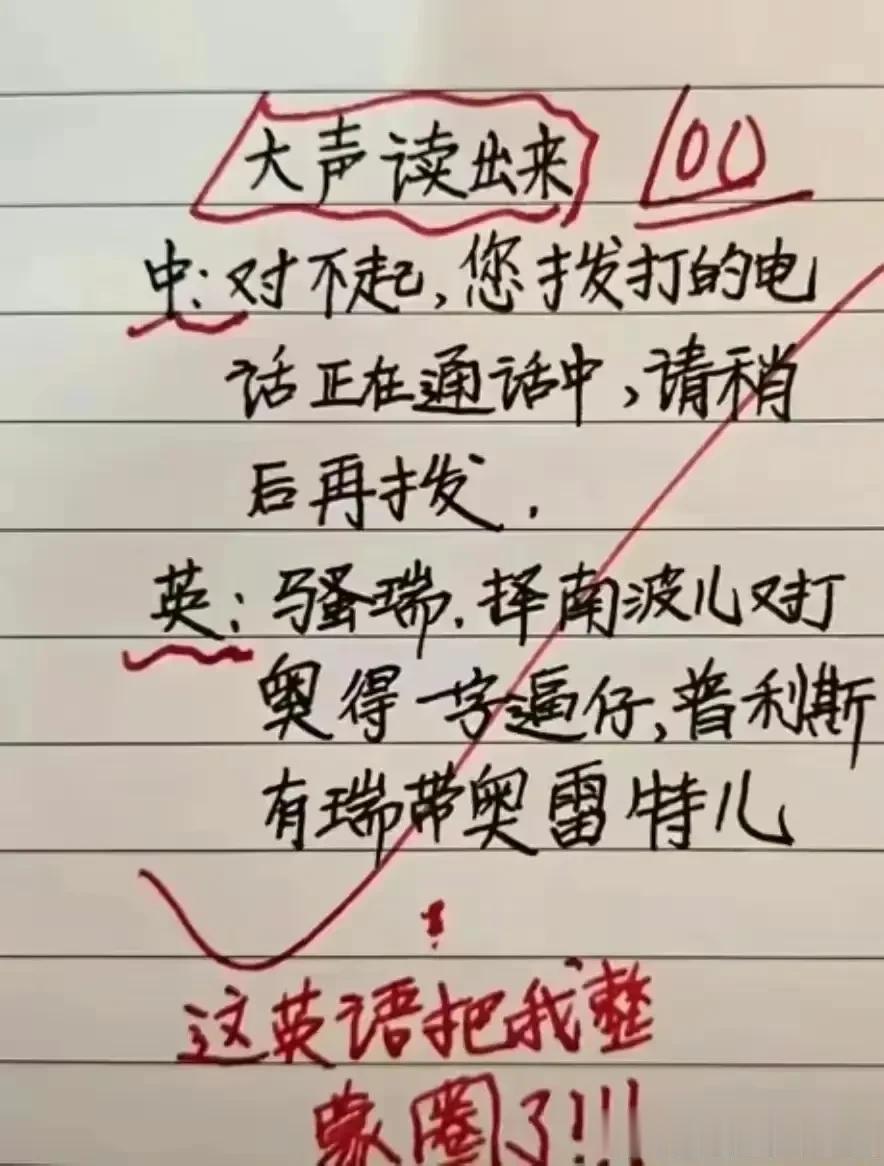 大声读出来 100
中:对不起,您拨打的电
话正在通话中,请稍
后再拨.
英:骚瑞.择南波儿又打
奥得一字逼仔,普利斯
有瑞带奥雷特儿
!
这英语把我整
蒙圈了!!!